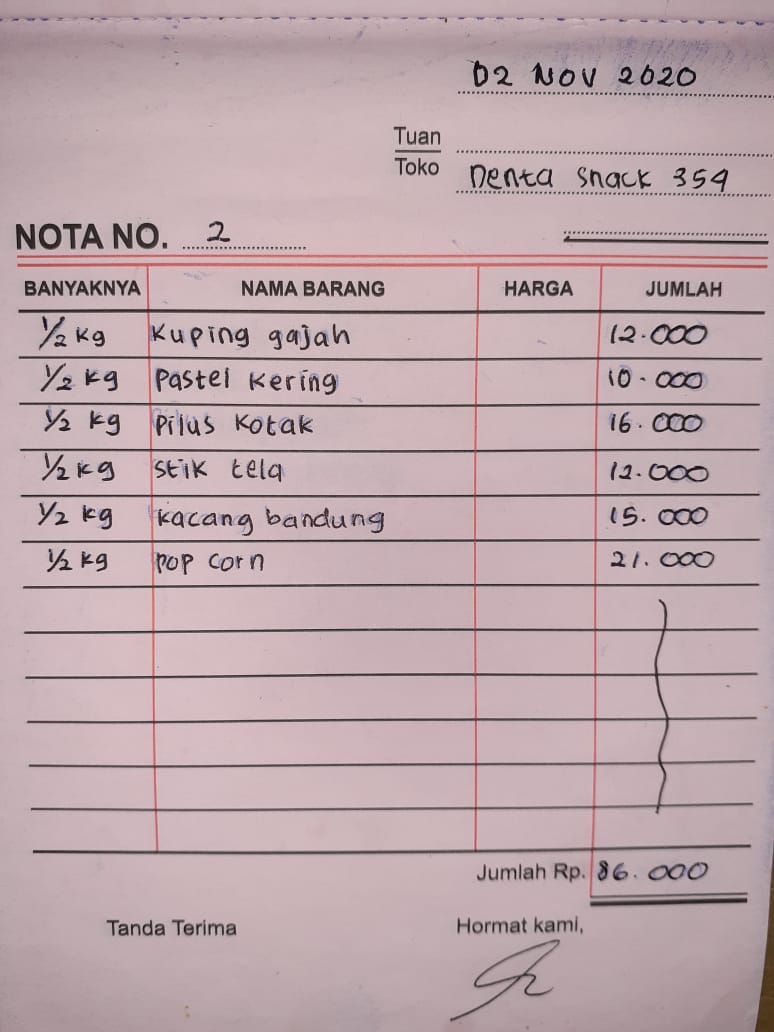 02 NOV 2020
Tuan
Toko Denta Snack 354
NOTA NO. 2
BANYAKNYA NAMA BARANG HARGA JUMLAH
1/2 kg Kuping gajah 12.000
1/2 kg Pastel Kering 10.000
1/2 kg Pilus Kotak 16.000
1/2 kg Stik tela 12.000
1/2 kg Kacang bandung 15.000
1/2 kg Pop corn 21.000
Jumlah Rp. 86.000
Tanda Terima Hormat kami,